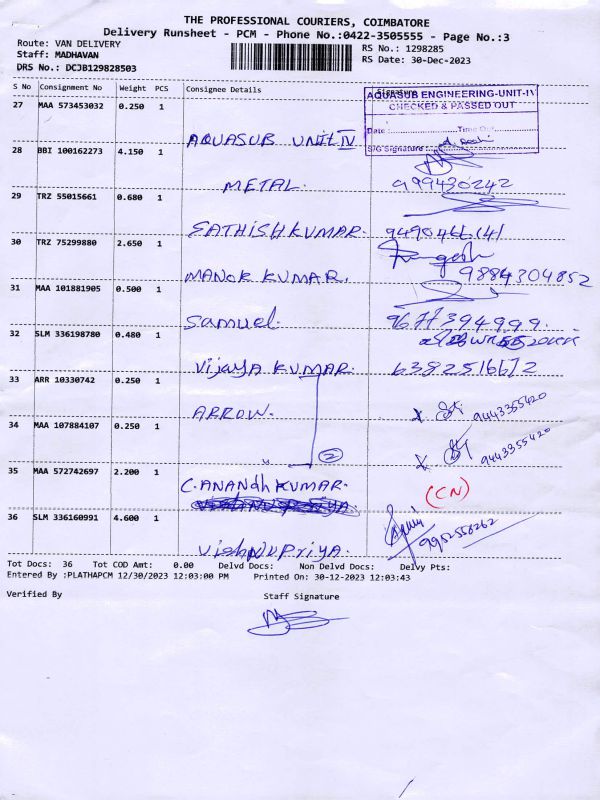 THE PROFESSIONAL COURIERS, COIMBATORE
Delivery Runsheet - PCM - Phone No.:0422-3505555 - Page No.:3
Route: VAN DELIVERY
Staff: MADHAVAN
DRS No.: DCJB129828503
RS No.: 1298285
RS Date: 30-Dec-2023
S No Consignment No Weight PCS Consignee Details Signature
27 MAA 573453032 0.250 1
AQUASUB UNIT IV
AQUASUB ENGINEERING-UNIT-IV
CHECKED & PASSED OUT
Date : Time Out
S/G Signature :
28 BBI 100162273 4.150 1
METAL. 999430242
29 TRZ 55015661 0.680 1
SATHISH KUMAR. 9490466141
30 TRZ 75299880 2.650 1
MANOK KUMAR. 9884304852
31 MAA 101881905 0.500 1
Samuel. 9677394999.
32 SLM 336198780 0.480 1
VijayA KUMAR. 6382516672
33 ARR 10330742 0.250 1
ARROW. x 9443355420
34 MAA 107884107 0.250 1
2 x 9443355420
35 MAA 572742697 2.200 1
C. ANANDh KUMAR. (CN)
36 SLM 336160991 4.600 1
VishNUPriya. 9952556262
Tot Docs: 36 Tot COD Amt: 0.00 Delvd Docs: Non Delvd Docs: Delvy Pts:
Entered By :PLATHAPCM 12/30/2023 12:03:00 PM Printed On: 30-12-2023 12:03:43
Verified By Staff Signature